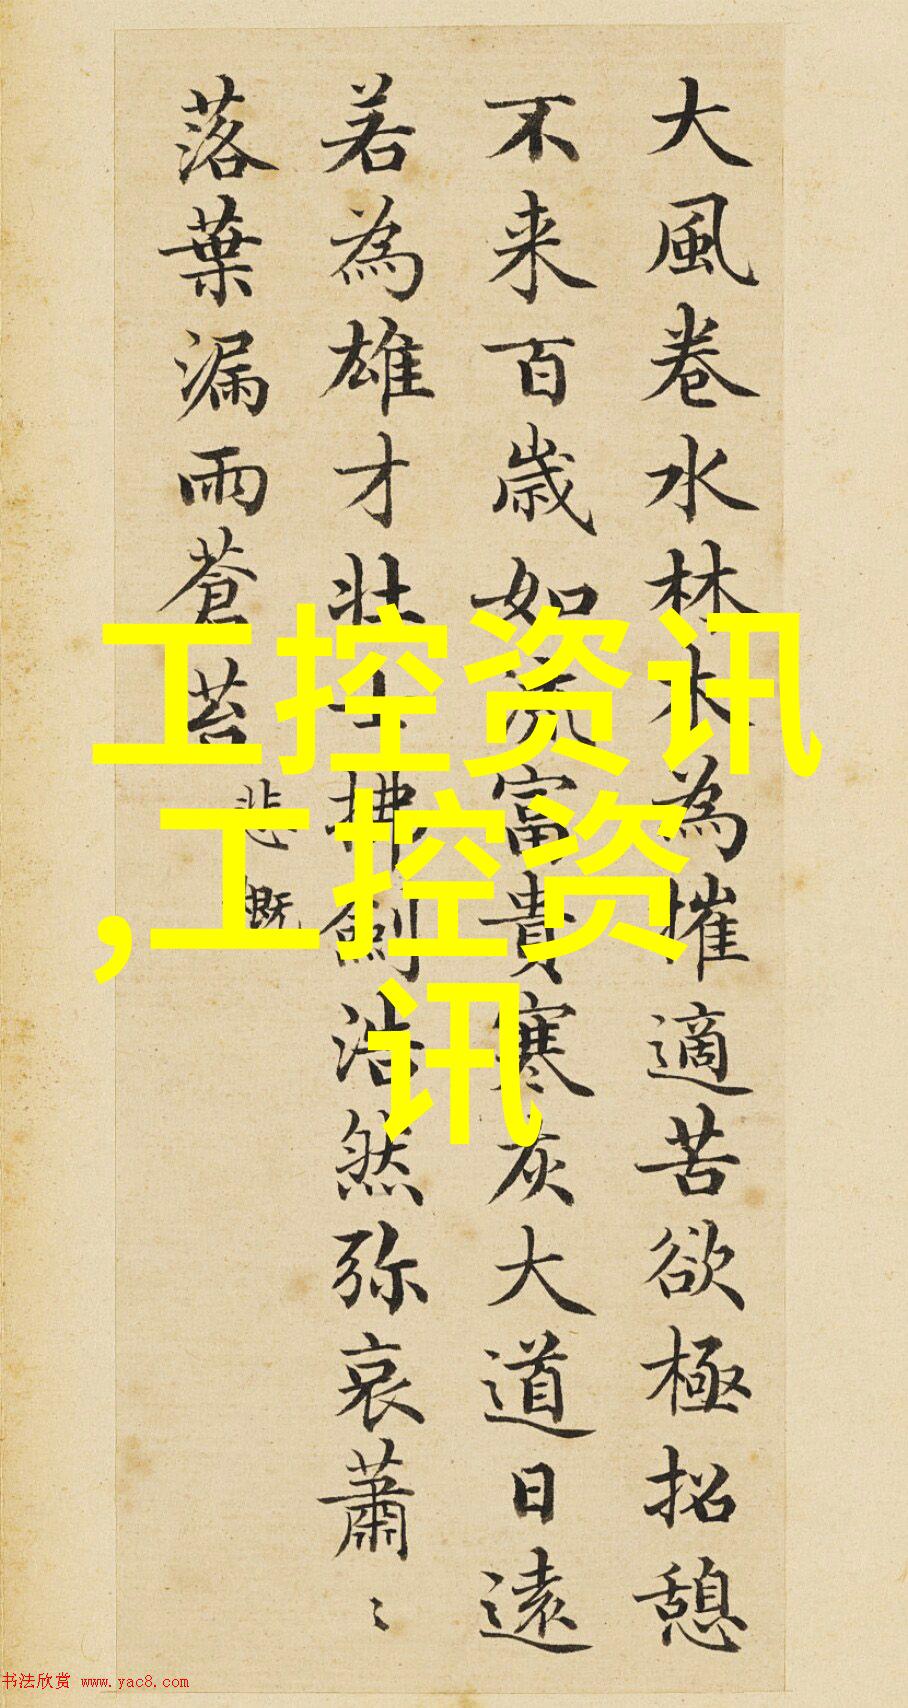 大風卷水林木為摧適苦欲極招憩
不来百歳如流富貴寒灰大道日遠
若為雄才壮士拂劍浩然弥哀蕭〻
落葉漏雨蒼苔
悲慨
工控资讯
,工控资
讯
书法欣赏 www.yac8.com